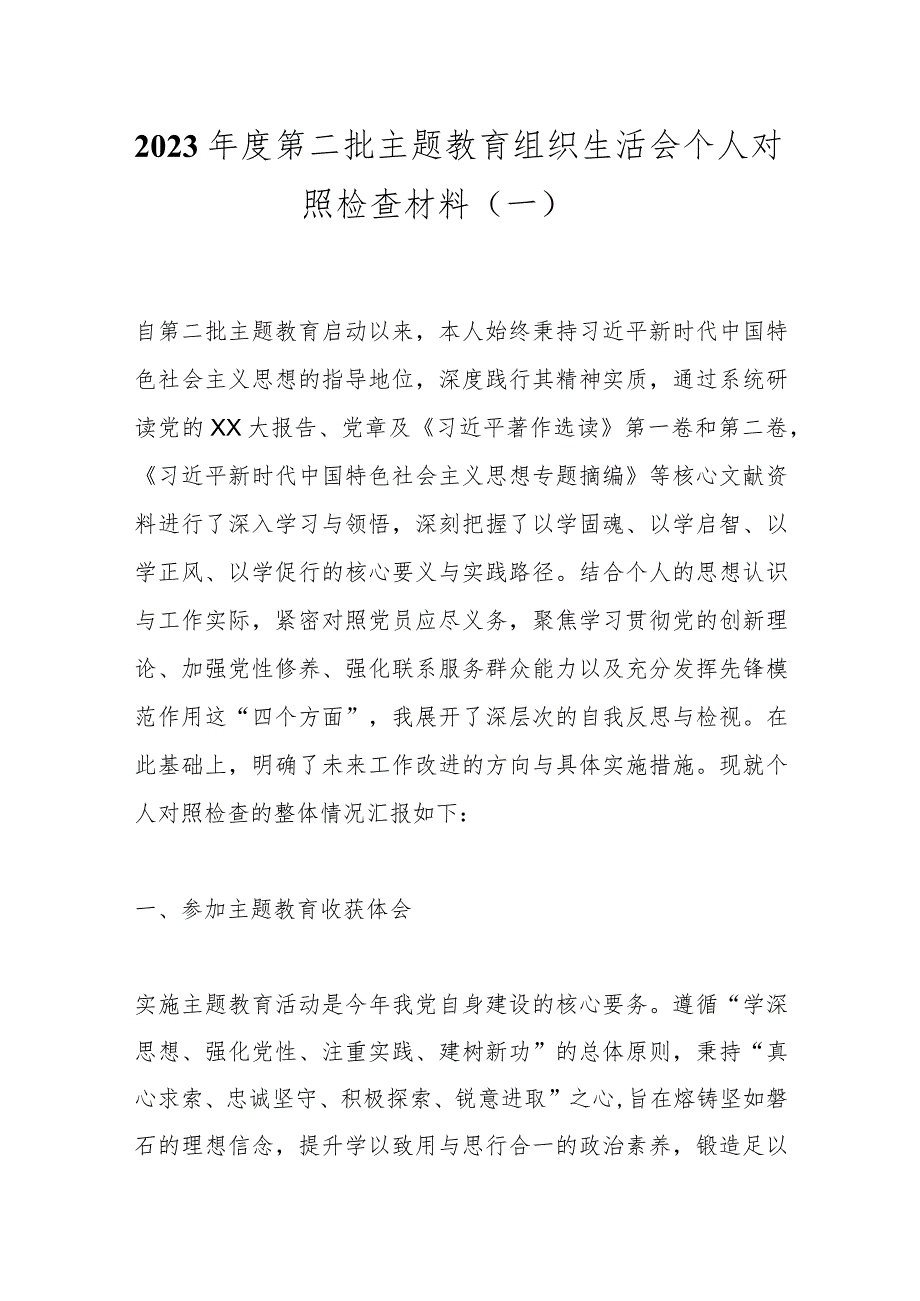 2023 年度第二批主题教育组织生活会个人对
照检查材料（一）
自第二批主题教育启动以来，本人始终秉持习近平新时代中国特
色社会主义思想的指导地位，深度践行其精神实质，通过系统研
读党的 XX 大报告、党章及《习近平著作选读》第一卷和第二卷，
《习近平新时代中国特色社会主义思想专题摘编》等核心文献资
料进行了深入学习与领悟，深刻把握了以学固魂、以学启智、以
学正风、以学促行的核心要义与实践路径。结合个人的思想认识
与工作实际，紧密对照党员应尽义务，聚焦学习贯彻党的创新理
论、加强党性修养、强化联系服务群众能力以及充分发挥先锋模
范作用这“四个方面”，我展开了深层次的自我反思与检视。在
此基础上，明确了未来工作改进的方向与具体实施措施。现就个
人对照检查的整体情况汇报如下：
一、参加主题教育收获体会
实施主题教育活动是今年我党自身建设的核心要务。遵循“学深
思想、强化党性、注重实践、建树新功”的总体原则，秉持“真
心求索、忠诚坚守、积极探索、锐意进取”之心,旨在熔铸坚如磐
石的理想信念，提升学以致用与思行合一的政治素养，锻造足以